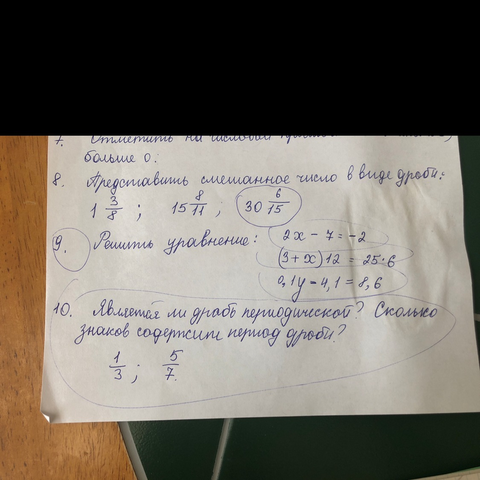 7. Отметить на числовой
больше 0.
8. Представить смешанное число в виде дроби:
1 3/8 ; 15 8/11 , 30 6/15
9. Решить уравнение: 2x - 7 = -2
(3+x)12 = 25·6
0,1y - 4,1 = 8,6
10. Является ли дробь периодической? Сколько
знаков содержит период дроби?
1/3 ; 5/7.